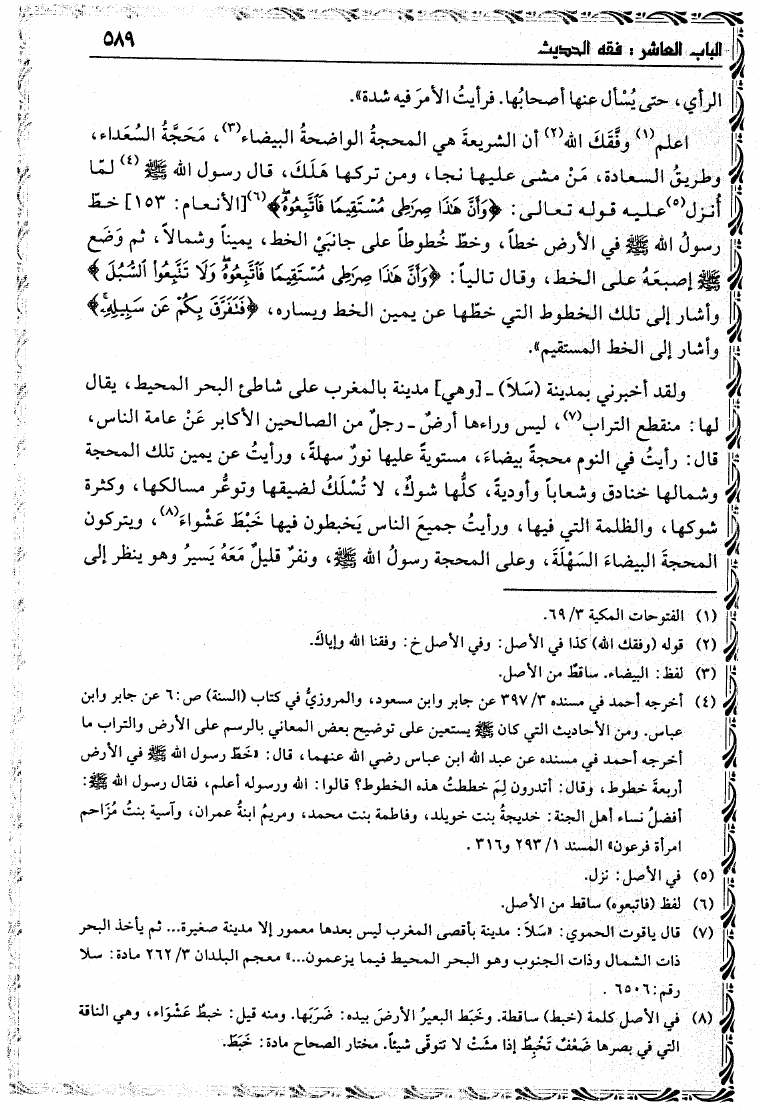 الباب العاشر : فقه الحديث
٥٨٩
الرأي، حتى يُسْأل عنها أصحابُها. فرأيتُ الأمرَ فيه شدة».
اعلم(١) وفَّقَكَ الله(٢) أن الشريعةَ هي المحجةُ الواضحةُ البيضاء(٣)، مَحَجَّةُ السُعَداء،
وطريقُ السعادة، مَنْ مشى عليها نجا، ومن تركها هَلَكَ، قال رسول الله ﷺ(٤) لمّا
أُنزل(٥) عليه قوله تعالى: ﴿وَأَنَّ هَٰذَا صِرَٰطِى مُسْتَقِيمًا فَٱتَّبِعُوهُۖ﴾(٦) [الأنعام: ١٥٣] خطّ
رسولُ الله ﷺ في الأرض خطاً، وخطّ خُطوطاً على جانبَيْ الخط، يميناً وشمالاً، ثم وَضَع
ﷺ إصبعَهُ على الخط، وقال تالياً: ﴿وَأَنَّ هَٰذَا صِرَٰطِى مُسْتَقِيمًا فَٱتَّبِعُوهُۖ وَلَا تَتَّبِعُوا۟ ٱلسُّبُلَ﴾
وأشار إلى تلك الخطوط التي خطّها عن يمين الخط ويساره، ﴿فَتَفَرَّقَ بِكُمْ عَن سَبِيلِهِۦۚ﴾
وأشار إلى الخط المستقيم».
ولقد أخبرني بمدينة (سَلاَ) ـ [وهي] مدينة بالمغرب على شاطئ البحر المحيط، يقال
لها: منقطع التراب(٧)، ليس وراءها أرضٌ ـ رجلٌ من الصالحين الأكابر عَنْ عامة الناس،
قال: رأيتُ في النوم محجةً بيضاءَ، مستويةً عليها نورٌ سهلةً، ورأيتُ عن يمين تلك المحجة
وشمالها خنادق وشعاباً وأوديةً، كلُّها شوكٌ، لا تُسْلَكُ لضيقها وتوعُّر مسالكها، وكثرة
شوكها، والظلمة التي فيها، ورأيتُ جميعَ الناس يَخبطون فيها خَبْطَ عَشْواءَ(٨)، ويتركون
المحجةَ البيضاءَ السَهْلَةَ، وعلى المحجة رسولُ الله ﷺ، ونفرٌ قليلٌ مَعَهُ يَسيرُ وهو ينظر إلى
(١) الفتوحات المكية ٣/ ٦٩.
(٢) قوله (وفقك الله) كذا في الأصل: وفي الأصل خ: وفقنا الله وإياكَ.
(٣) لفظ: البيضاء. ساقطٌ من الأصل.
(٤) أخرجه أحمد في مسنده ٣/ ٣٩٧ عن جابر وابن مسعود، والمروزيُّ في كتاب (السنة) ص: ٦ عن جابر وابن
عباس. ومن الأحاديث التي كان ﷺ يستعين على توضيح بعض المعاني بالرسم على الأرض والتراب ما
أخرجه أحمد في مسنده عن عبد الله ابن عباس رضي الله عنهما، قال: «خَطّ رسول الله ﷺ في الأرض
أربعةَ خطوط، وقال: أتدرون لِمَ خططتُ هذه الخطوط؟ قالوا: الله ورسوله أعلم، فقال رسول الله ﷺ:
أفضلُ نساء أهل الجنة: خديجةُ بنت خويلد، وفاطمة بنت محمد، ومريمُ ابنةُ عمران، وآسية بنتُ مُزَاحم
امرأة فرعون» المسند ١/ ٢٩٣ و٣١٦ .
(٥) في الأصل: نزل.
(٦) لفظ (فاتبعوه) ساقط من الأصل.
(٧) قال ياقوت الحموي: «سَلاَ: مدينة بأقصى المغرب ليس بعدها معمور إلا مدينة صغيرة... ثم يأخذ البحر
ذات الشمال وذات الجنوب وهو البحر المحيط فيما يزعمون...» معجم البلدان ٣/ ٢٦٢ مادة: سلا
رقم: ٦٥٠٦ .
(٨) في الأصل كلمة (خبط) ساقطة. وخَبَط البعيرُ الأرضَ بيده: ضَرَبَها. ومنه قيل: خبطُ عَشْوَاء، وهي الناقة
التي في بصرها ضَعْفٌ تَخْبِطُ إذا مشَتْ لا تتوقّى شيئاً. مختار الصحاح مادة: خَبَطَ.